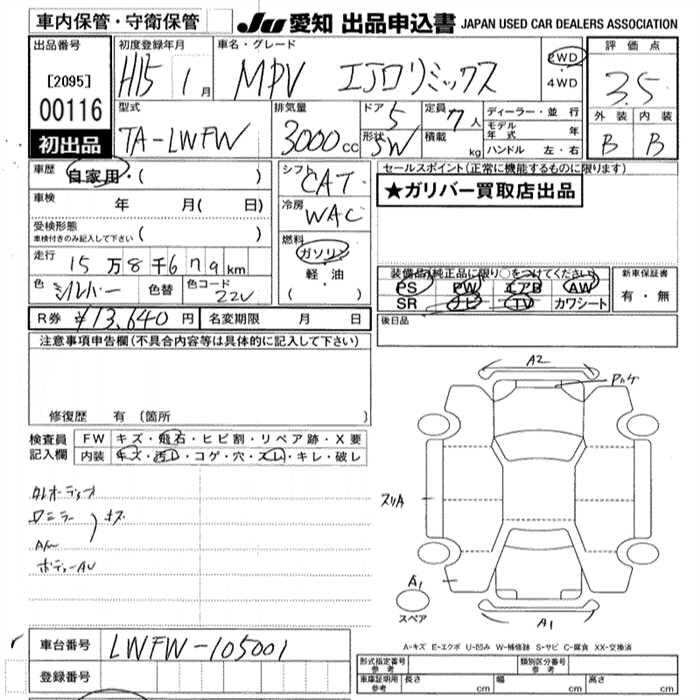 車内保管・守衛保管
JU 愛知 出品申込書 JAPAN USED CAR DEALERS ASSOCIATION
出品番号
[2095]
00116
初出品
初度登録年月
H15 1月
車名・グレード
MPV エアロリミックス
2WD
4WD
評価点
3.5
外装 内装
B B
型式
TA-LWFW
排気量
3000cc
ドア
5
形状
SW
定員
7人
積載
kg
ディーラー・並行
モデル年式 年
ハンドル 左・右
車歴
自家用・( )
車検
年 月( 日)
受検形態
車検付きのみ記入して下さい ( )
走行
15万8千679km
色
シルバー
色替
色コード
22V
シフト
CAT
冷房
WAC
燃料
ガソリン
軽・油
( )
セールスポイント(正常に機能するものに限ります)
★ガリバー買取店出品
装備品(純正品に限り○をつけてください)
PS PW エアB AW
SR ナビ TV カワシート
新車保証書
有・無
後日品
R券 ¥13,640円
名変期限 月 日
注意事項申告欄(不具合内容等は具体的に記入して下さい)
修復歴 有 (箇所
検査員記入欄
FW キズ・飛石・ヒビ割・リペア跡・X要
内装 キズ・汚レ・コゲ・穴・スレ・キレ・破レ
ミラー
キズ
ボディーAU
A2
スリA
A1
スペア
A1
A-キズ E-エクボ U-凹み W-補修跡 S-サビ C-腐食 XX-交換済
車台番号
LWFW-105001
登録番号
形式指定番号
参考
類別区分番号
参考
車庫証明用
参考
長さ cm
幅 cm
高さ cm